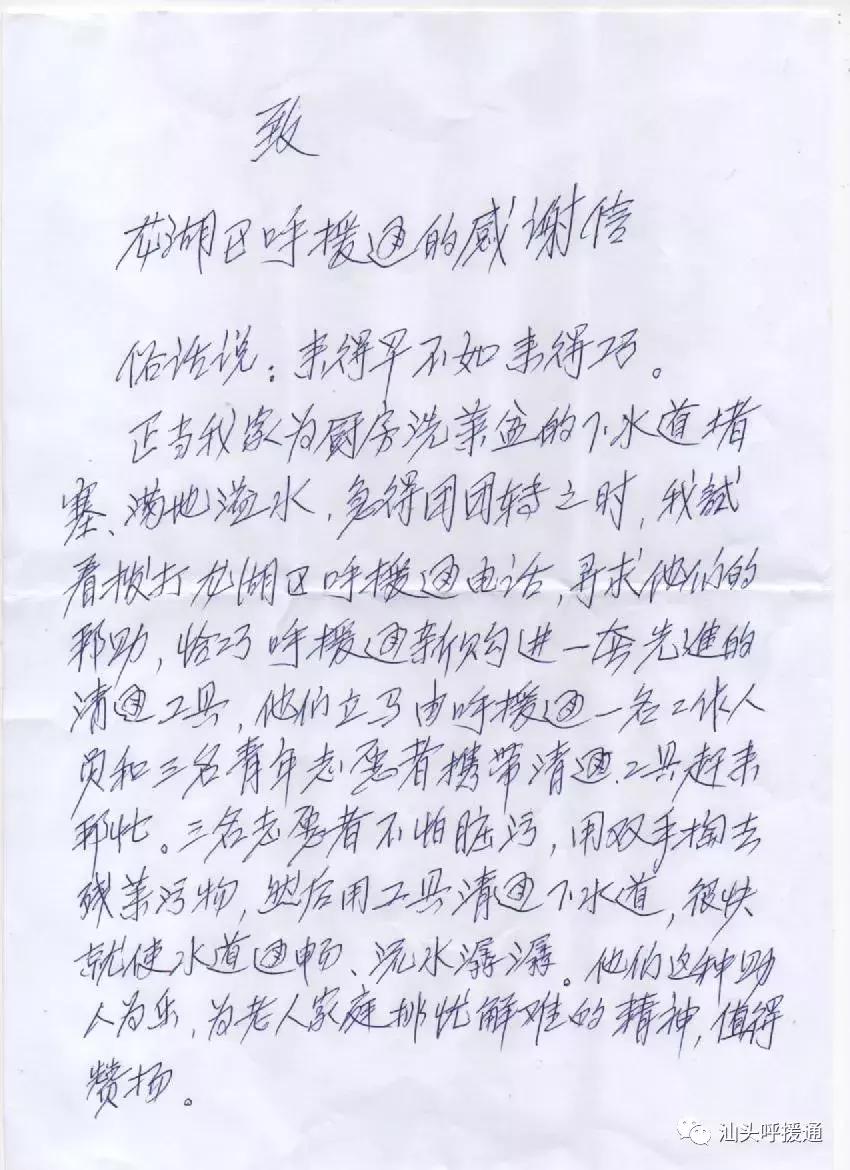 致
龙湖区呼援通的感谢信
俗话说：来得早不如来得巧。
正当我家为厨房洗菜盆的下水道堵
塞、满地溢水，急得团团转之时，我試
着拨打龙湖区呼援通电话，寻求他们的
帮助，恰巧呼援通新购进一套先進的
清通工具，他们立马由呼援通一名工作人
员和三名青年志愿者携带清通工具赶来
帮忙。三名志愿者不怕脏污，用双手掏去
残菜污物，然后用工具清通下水道，很快
就使水道通畅、流水潺潺。他们这种助
人为乐，为老人家庭排忧解难的精神，值得
赞扬。
汕头呼援通